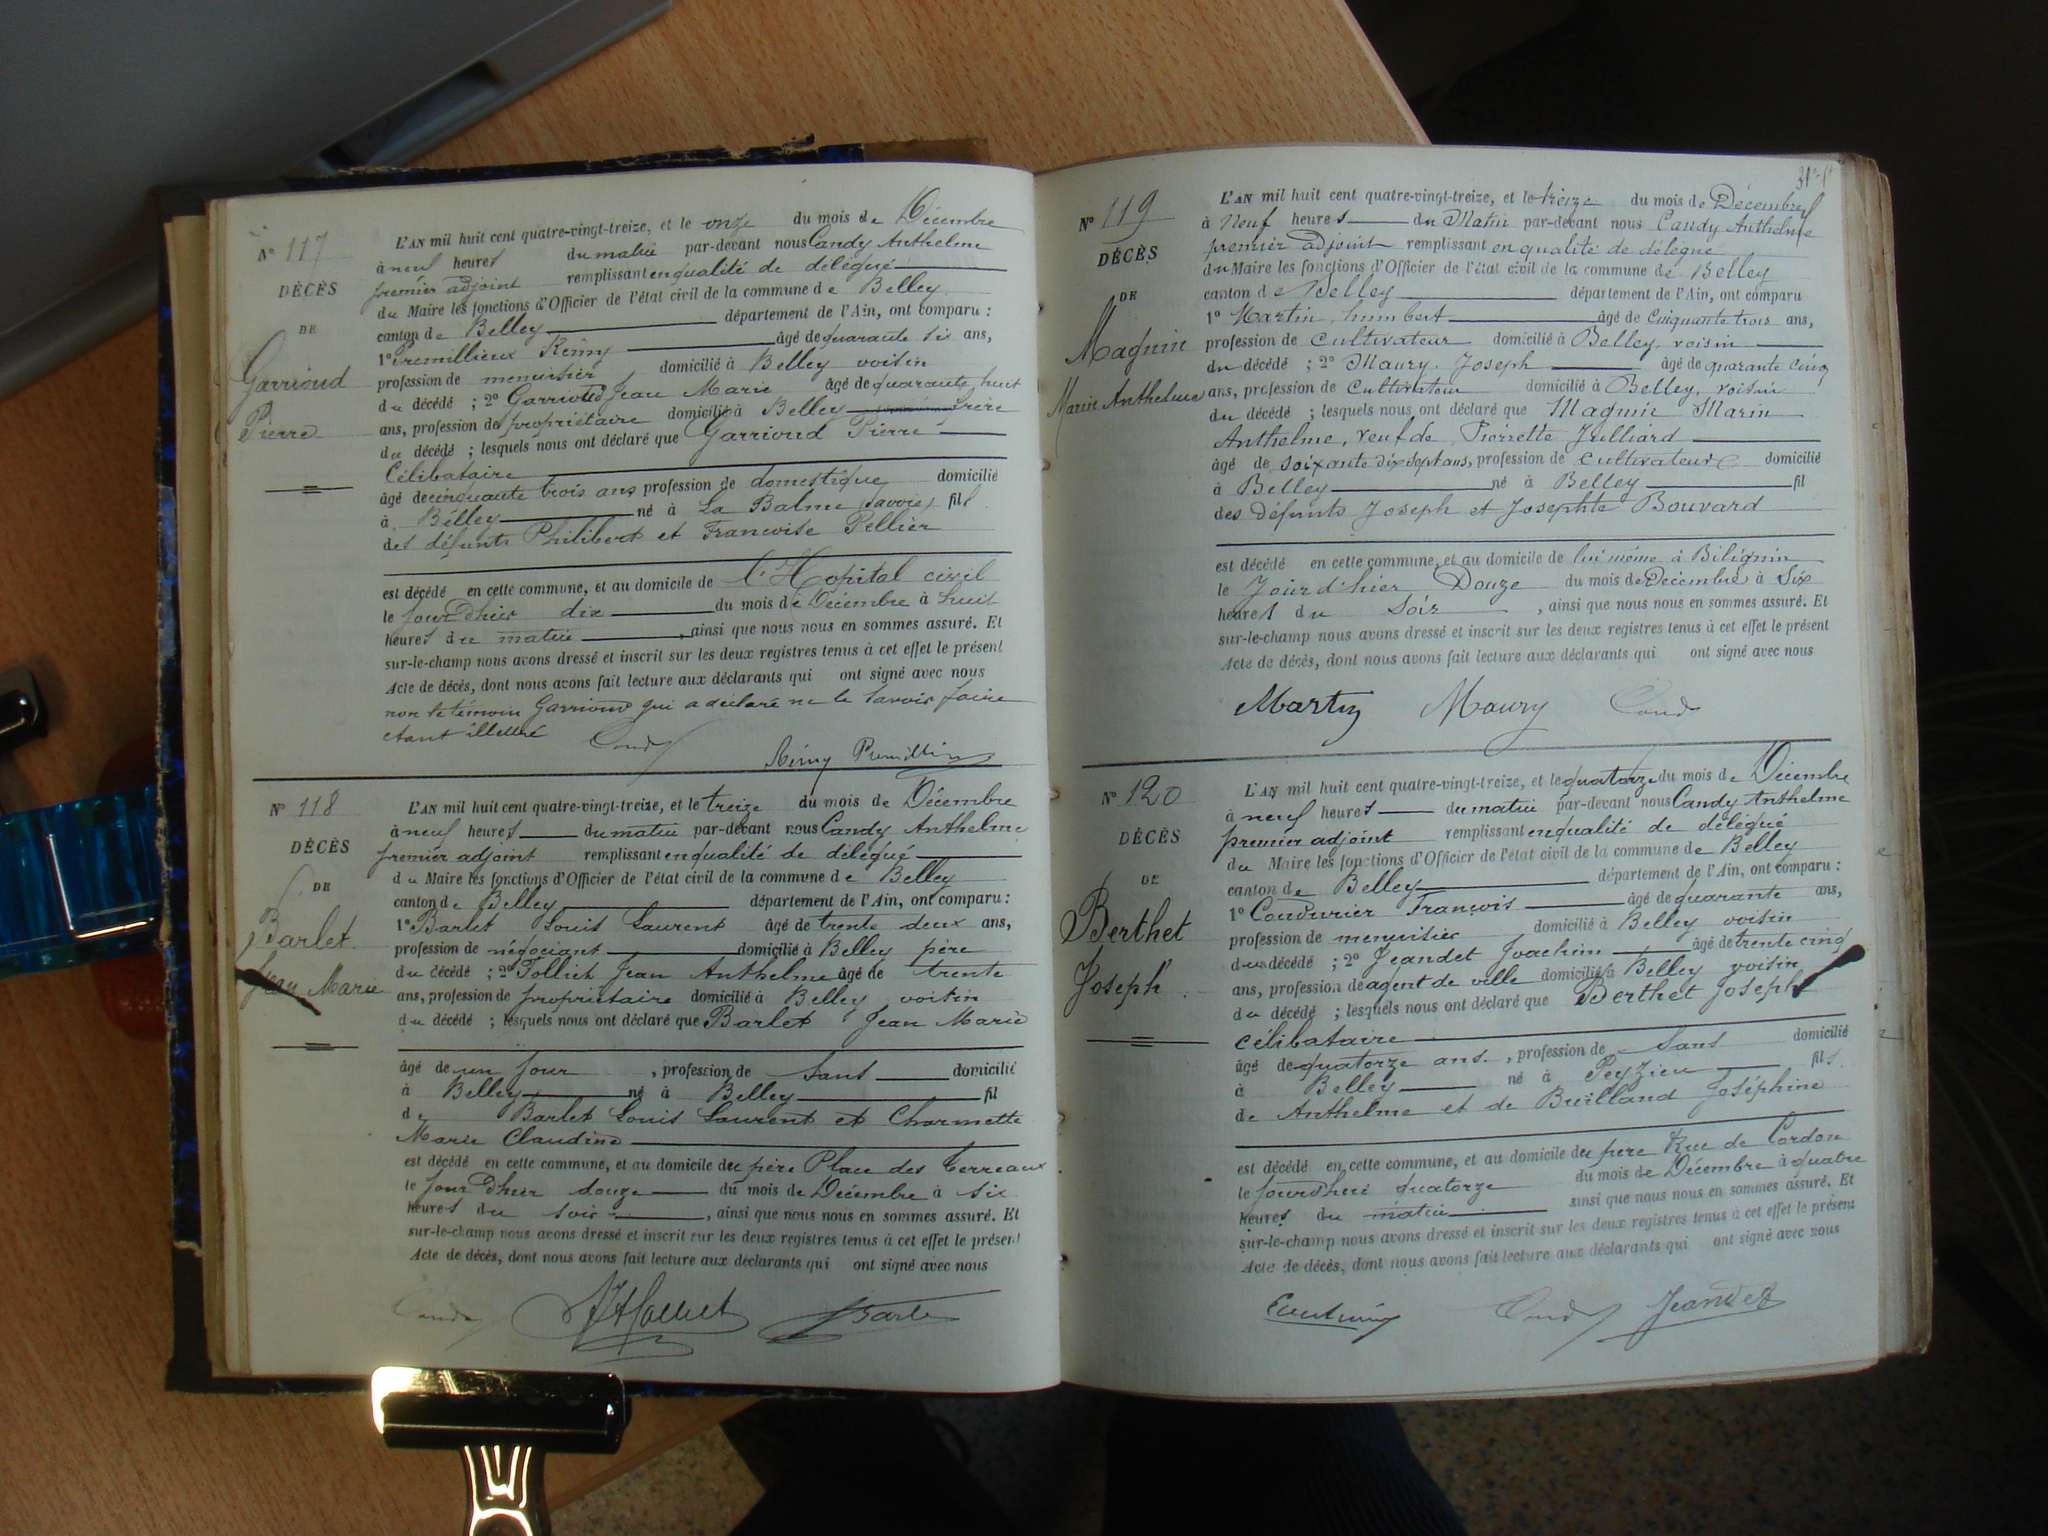 N° 117
DÉCÈS
DE
Garrioud
Pierre
L'AN mil huit cent quatre-vingt-treize, et le onze du mois de Décembre
à neuf heures du matin par-devant nous Candy Anthelme
premier adjoint remplissant en qualité de délégué
du Maire les fonctions d'Officier de l'état civil de la commune de Belley
canton de Belley département de l'Ain, ont comparu :
1° Premillieux Rémy âgé de quarante six ans,
profession de menuisier domicilié à Belley voisin
du décédé ; 2° Garrioud Jean Marie âgé de quarante huit
ans, profession de propriétaire domicilié à Belley frère
du décédé ; lesquels nous ont déclaré que Garrioud Pierre
Célibataire
âgé de cinquante trois ans profession de domestique domicilié
à Belley né à La Balme (Savoie) fils
des défunts Philibert et Francoise Pellier
est décédé en cette commune, et au domicile de l'Hopital civil
le jour d'hier dix du mois de Décembre à huit
heures du matin, ainsi que nous nous en sommes assuré. Et
sur-le-champ nous avons dressé et inscrit sur les deux registres tenus à cet effet le présent
Acte de décès, dont nous avons fait lecture aux déclarants qui ont signé avec nous
non le témoin Garrioud qui a déclaré ne le savoir faire
étant illétré
Candy Rémy Premillieux
N° 118
DÉCÈS
DE
Barlet
Jean Marie
L'AN mil huit cent quatre-vingt-treize, et le treize du mois de Décembre
à neuf heures du matin par-devant nous Candy Anthelme
premier adjoint remplissant en qualité de délégué
du Maire les fonctions d'Officier de l'état civil de la commune de Belley
canton de Belley département de l'Ain, ont comparu :
1° Barlet Louis Laurent âgé de trente deux ans,
profession de négociant domicilié à Belley père
du décédé ; 2° Tolliet Jean Anthelme âgé de trente
ans, profession de propriétaire domicilié à Belley voisin
du décédé ; lesquels nous ont déclaré que Barlet Jean Marie
âgé de un jour, profession de sans domicilié
à Belley né à Belley fil
de Barlet Louis Laurent et Charmette
Marie Claudine
est décédé en cette commune, et au domicile du père Place des Terreaux
le jour d'hier douze du mois de Décembre à six
heures du soir, ainsi que nous nous en sommes assuré. Et
sur-le-champ nous avons dressé et inscrit sur les deux registres tenus à cet effet le présent
Acte de décès, dont nous avons fait lecture aux déclarants qui ont signé avec nous
Candy JATolliet Barlet
N° 119
DÉCÈS
DE
Magnin
Marin Anthelme
L'AN mil huit cent quatre-vingt-treize, et le treize du mois de Décembre
à Neuf heures du Matin par-devant nous Candy Anthelme
premier adjoint remplissant en qualité de délégué
du Maire les fonctions d'Officier de l'état civil de la commune de Belley
canton de Belley département de l'Ain, ont comparu
1° Martin, humbert âgé de Cinquante trois ans,
profession de Cultivateur domicilié à Belley, voisin
du décédé ; 2° Maury, Joseph âgé de quarante cinq
ans, profession de Cultivateur domicilié à Belley, voisin
du décédé ; lesquels nous ont déclaré que Magnin Marin
Anthelme, veuf de Pierrette Julliard
âgé de soixante dix sept ans, profession de Cultivateur domicilié
à Belley né à Belley fil
des défunts Joseph et Josephte Bouvard
est décédé en cette commune, et au domicile de lui même à Bilignin
le Jour d'hier Douze du mois de Decembre à Six
heures du Soir, ainsi que nous nous en sommes assuré. Et
sur-le-champ nous avons dressé et inscrit sur les deux registres tenus à cet effet le présent
Acte de décès, dont nous avons fait lecture aux déclarants qui ont signé avec nous
Martin Maury Candy
N° 120
DÉCÈS
DE
Berthet
Joseph
L'AN mil huit cent quatre-vingt-treize, et le quatorze du mois de Décembre
à neuf heures du matin par-devant nous Candy Anthelme
premier adjoint remplissant en qualité de délégué
du Maire les fonctions d'Officier de l'état civil de la commune de Belley
canton de Belley département de l'Ain, ont comparu :
1° Coudurier François âgé de quarante ans,
profession de menuisier domicilié à Belley voisin
du décédé ; 2° Jeandet Joachim âgé de trente cinq
ans, profession de agent de ville domicilié à Belley voisin
du décédé ; lesquels nous ont déclaré que Berthet Joseph
célibataire
âgé de quatorze ans, profession de sans domicilié
à Belley né à Peyzieu fils
de Anthelme et de Builland Joséphine
est décédé en cette commune, et au domicile du père Rue de Cordon
le jourd'hui quatorze du mois de Décembre à quatre
heures du matin ainsi que nous nous en sommes assuré. Et
sur-le-champ nous avons dressé et inscrit sur les deux registres tenus à cet effet le présent
Acte de décès, dont nous avons fait lecture aux déclarants qui ont signé avec nous
Candy Jeandet